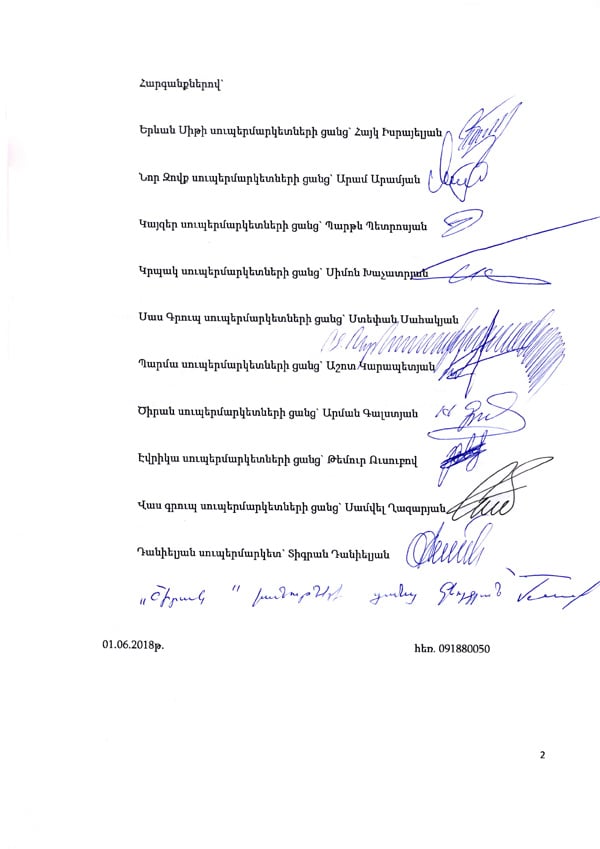 Հարգանքներով՝
Երևան Սիթի սուպերմարկետների ցանց՝ Հայկ Իսրայելյան
Նոր Զովք սուպերմարկետների ցանց՝ Արամ Արամյան
Կայզեր սուպերմարկետների ցանց՝ Պարթև Պետրոսյան
Կրպակ սուպերմարկետների ցանց՝ Սիմոն Խաչատրյան
Սաս Գրուպ սուպերմարկետների ցանց՝ Ստեփան Սահակյան
Պարմա սուպերմարկետների ցանց՝ Աշոտ Կարապետյան
Ծիրան սուպերմարկետների ցանց՝ Արման Գալստյան
Էվրիկա սուպերմարկետների ցանց՝ Թեմուր Ուսուբով
Վաս գրուպ սուպերմարկետների ցանց՝ Սամվել Ղազարյան
Դանիելյան սուպերմարկետ՝ Տիգրան Դանիելյան
„Շիրակ " խանութների ցանց
01.06.2018թ. հեռ. 091880050
2